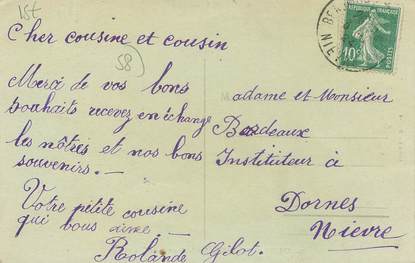 15t
Cher cousine et cousin
58
Merci de vos bons
souhaits recevez en échange
les nôtres et nos bons
souvenirs. —
Votre petite cousine
qui vous aime. —
Rolande Gilot.
RÉPUBLIQUE FRANÇAISE
10c
POSTES
Madame et Monsieur
Bordeaux
Instituteur à
Dornes
Nievre